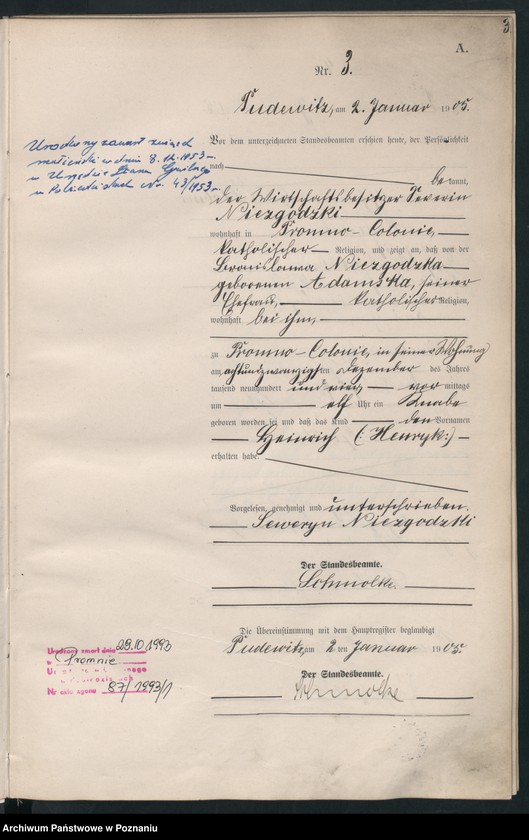 3
A.
Nr. 3.
Pudewitz, am 2. Januar 1905.
Vor dem unterzeichneten Standesbeamten erschien heute, der Persönlichkeit
nach
bekannt,
der Wirthschaftsbesitzer Severin
Niezgodzki
wohnhaft in Promno-Colonie,
katholischer Religion, und zeigte an, daß von der
Bronislawa Niezgodzka
geborenen Adamska, seiner
Ehefrau, katholischer Religion,
wohnhaft bei ihm,
zu Promno-Colonie, in seiner Wohnung
am achtundzwanzigsten Dezember des Jahres
tausend neunhundert und vier vor mittags
um elf Uhr ein Knabe
geboren worden sei und daß das Kind den Vornamen
Heinrich (: Henryk :)
erhalten habe
Vorgelesen, genehmigt und unterschrieben.
Seweryn Niezgodzki
Der Standesbeamte.
Schmolke.
Die Übereinstimmung mit dem Hauptregister beglaubigt
Pudewitz, am 2 ten Januar 1905.
Der Standesbeamte.
Schmolke
Urodzony zawarł związek
małżeński w dniu 8.11.1953
w Urzędzie Stanu Cywilnego
w Pobiedziskach Nr. 43/1953.
Urodzony zmarł dnia 28.10.1993
w Promnie
Nr aktu zgonu 87/1993/1
Archiwum Państwowe w Poznaniu